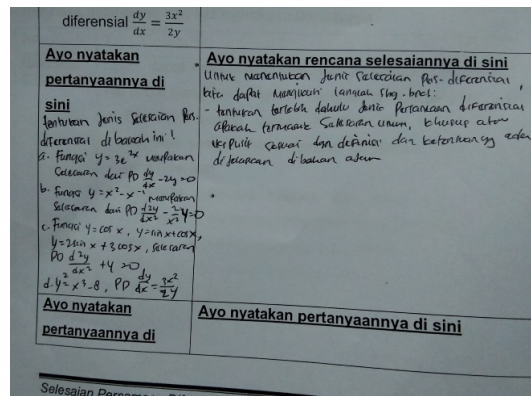 diferensial dy/dx = 3x²/2y
Ayo nyatakan
pertanyaannya di
sini
Tentukan Jenis Selesaian Pers.
diferensial di bawah ini!
a. Fungsi y = 3e^2x merupakan
Selesaian dari PD dy/dx - 2y = 0
b. Fungsi y = x² - x⁻¹ merupakan
Selesaian dari PD d²y/dx² - 2/x² y = 0
c. Fungsi y = cos x, y = sin x + cos x,
y = 2 sin x + 3 cos x, selesaian
PD d²y/dx² + y = 0
d. y² = x³ - 8, PD dy/dx = 3x²/2y
Ayo nyatakan rencana selesaiannya di sini
Untuk menentukan Jenis Selesaian Pers. diferensial,
kita dapat mengikuti langkah sbg. brkt:
- tentukan terlebih dahulu Jenis Persamaan diferensial
apakah termasuk Selesaian umum, khusus atau
sesuai dgn definisi dan ketentuan yg ada
di jelaskan dibahan
Ayo nyatakan
pertanyaannya di
Ayo nyatakan pertanyaannya di sini
Selesaian